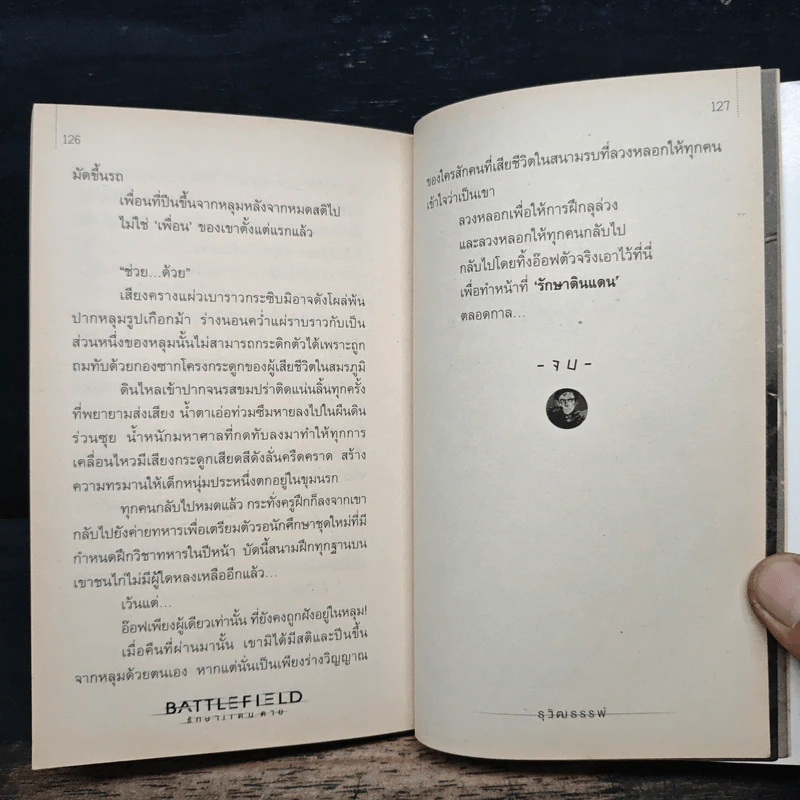 126
มัดขึ้นรถ
เพื่อนที่ปีนขึ้นจากหลุมหลังจากหมดสติไป
ไม่ใช่ ‘เพื่อน’ ของเขาตั้งแต่แรกแล้ว
“ช่วย...ด้วย”
เสียงครางแผ่วเบาราวกระซิบมิอาจดังโผล่พ้น
ปากหลุมรูปเกือกม้า ร่างนอนคว่ำแผ่ราบราวกับเป็น
ส่วนหนึ่งของหลุมนั้นไม่สามารถกระดิกตัวได้เพราะถูก
ถมทับด้วยกองซากโครงกระดูกของผู้เสียชีวิตในสมรภูมิ
ดินไหลเข้าปากจนรสขมปร่าติดแน่นลิ้นทุกครั้ง
ที่พยายามส่งเสียง น้ำตาเอ่อท่วมซึมหายลงไปในผืนดิน
ร่วนซุย น้ำหนักมหาศาลที่กดทับลงมาทำให้ทุกการ
เคลื่อนไหวมีเสียงกระดูกเสียดสีดังลั่นครืดคราด สร้าง
ความทรมานให้เด็กหนุ่มประหนึ่งตกอยู่ในขุมนรก
ทุกคนกลับไปหมดแล้ว กระทั่งครูฝึกก็ลงจากเขา
กลับไปยังค่ายทหารเพื่อเตรียมตัวรอนักศึกษาชุดใหม่ที่มี
กำหนดฝึกวิชาทหารในปีหน้า บัดนี้สนามฝึกทุกฐานบน
เขาชนไก่ไม่มีผู้ใดหลงเหลืออีกแล้ว...
เว้นแต่...
อ๊อฟเพียงผู้เดียวเท่านั้น ที่ยังคงถูกฝังอยู่ในหลุม!
เมื่อคืนที่ผ่านมานั้น เขามิได้มีสติและปีนขึ้น
จากหลุมด้วยตนเอง หากแต่นั่นเป็นเพียงร่างวิญญาณ
BATTLEFIELD
รักษาแดนตาย
127
ของใครสักคนที่เสียชีวิตในสนามรบที่ลวงหลอกให้ทุกคน
เข้าใจว่าเป็นเขา
ลวงหลอกเพื่อให้การฝึกลุล่วง
และลวงหลอกให้ทุกคนกลับไป
กลับไปโดยทิ้งอ๊อฟตัวจริงเอาไว้ที่นี่
เพื่อทำหน้าที่ ‘รักษาดินแดน’
ตลอดกาล...
- จบ -
รุวิฒธรรพ์